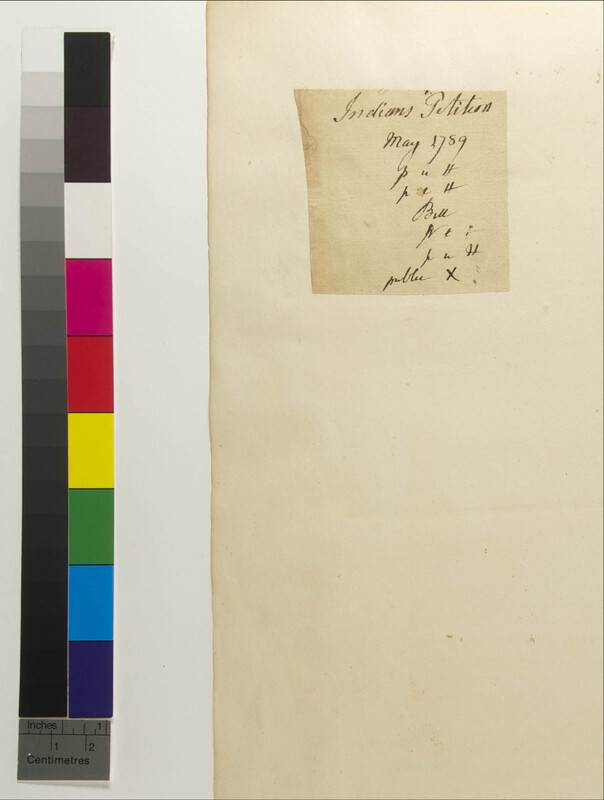 Indians' Petition
May 1789
p u H
p H
Bill
p u H
public X
Inches 1
1 2
Centimetres